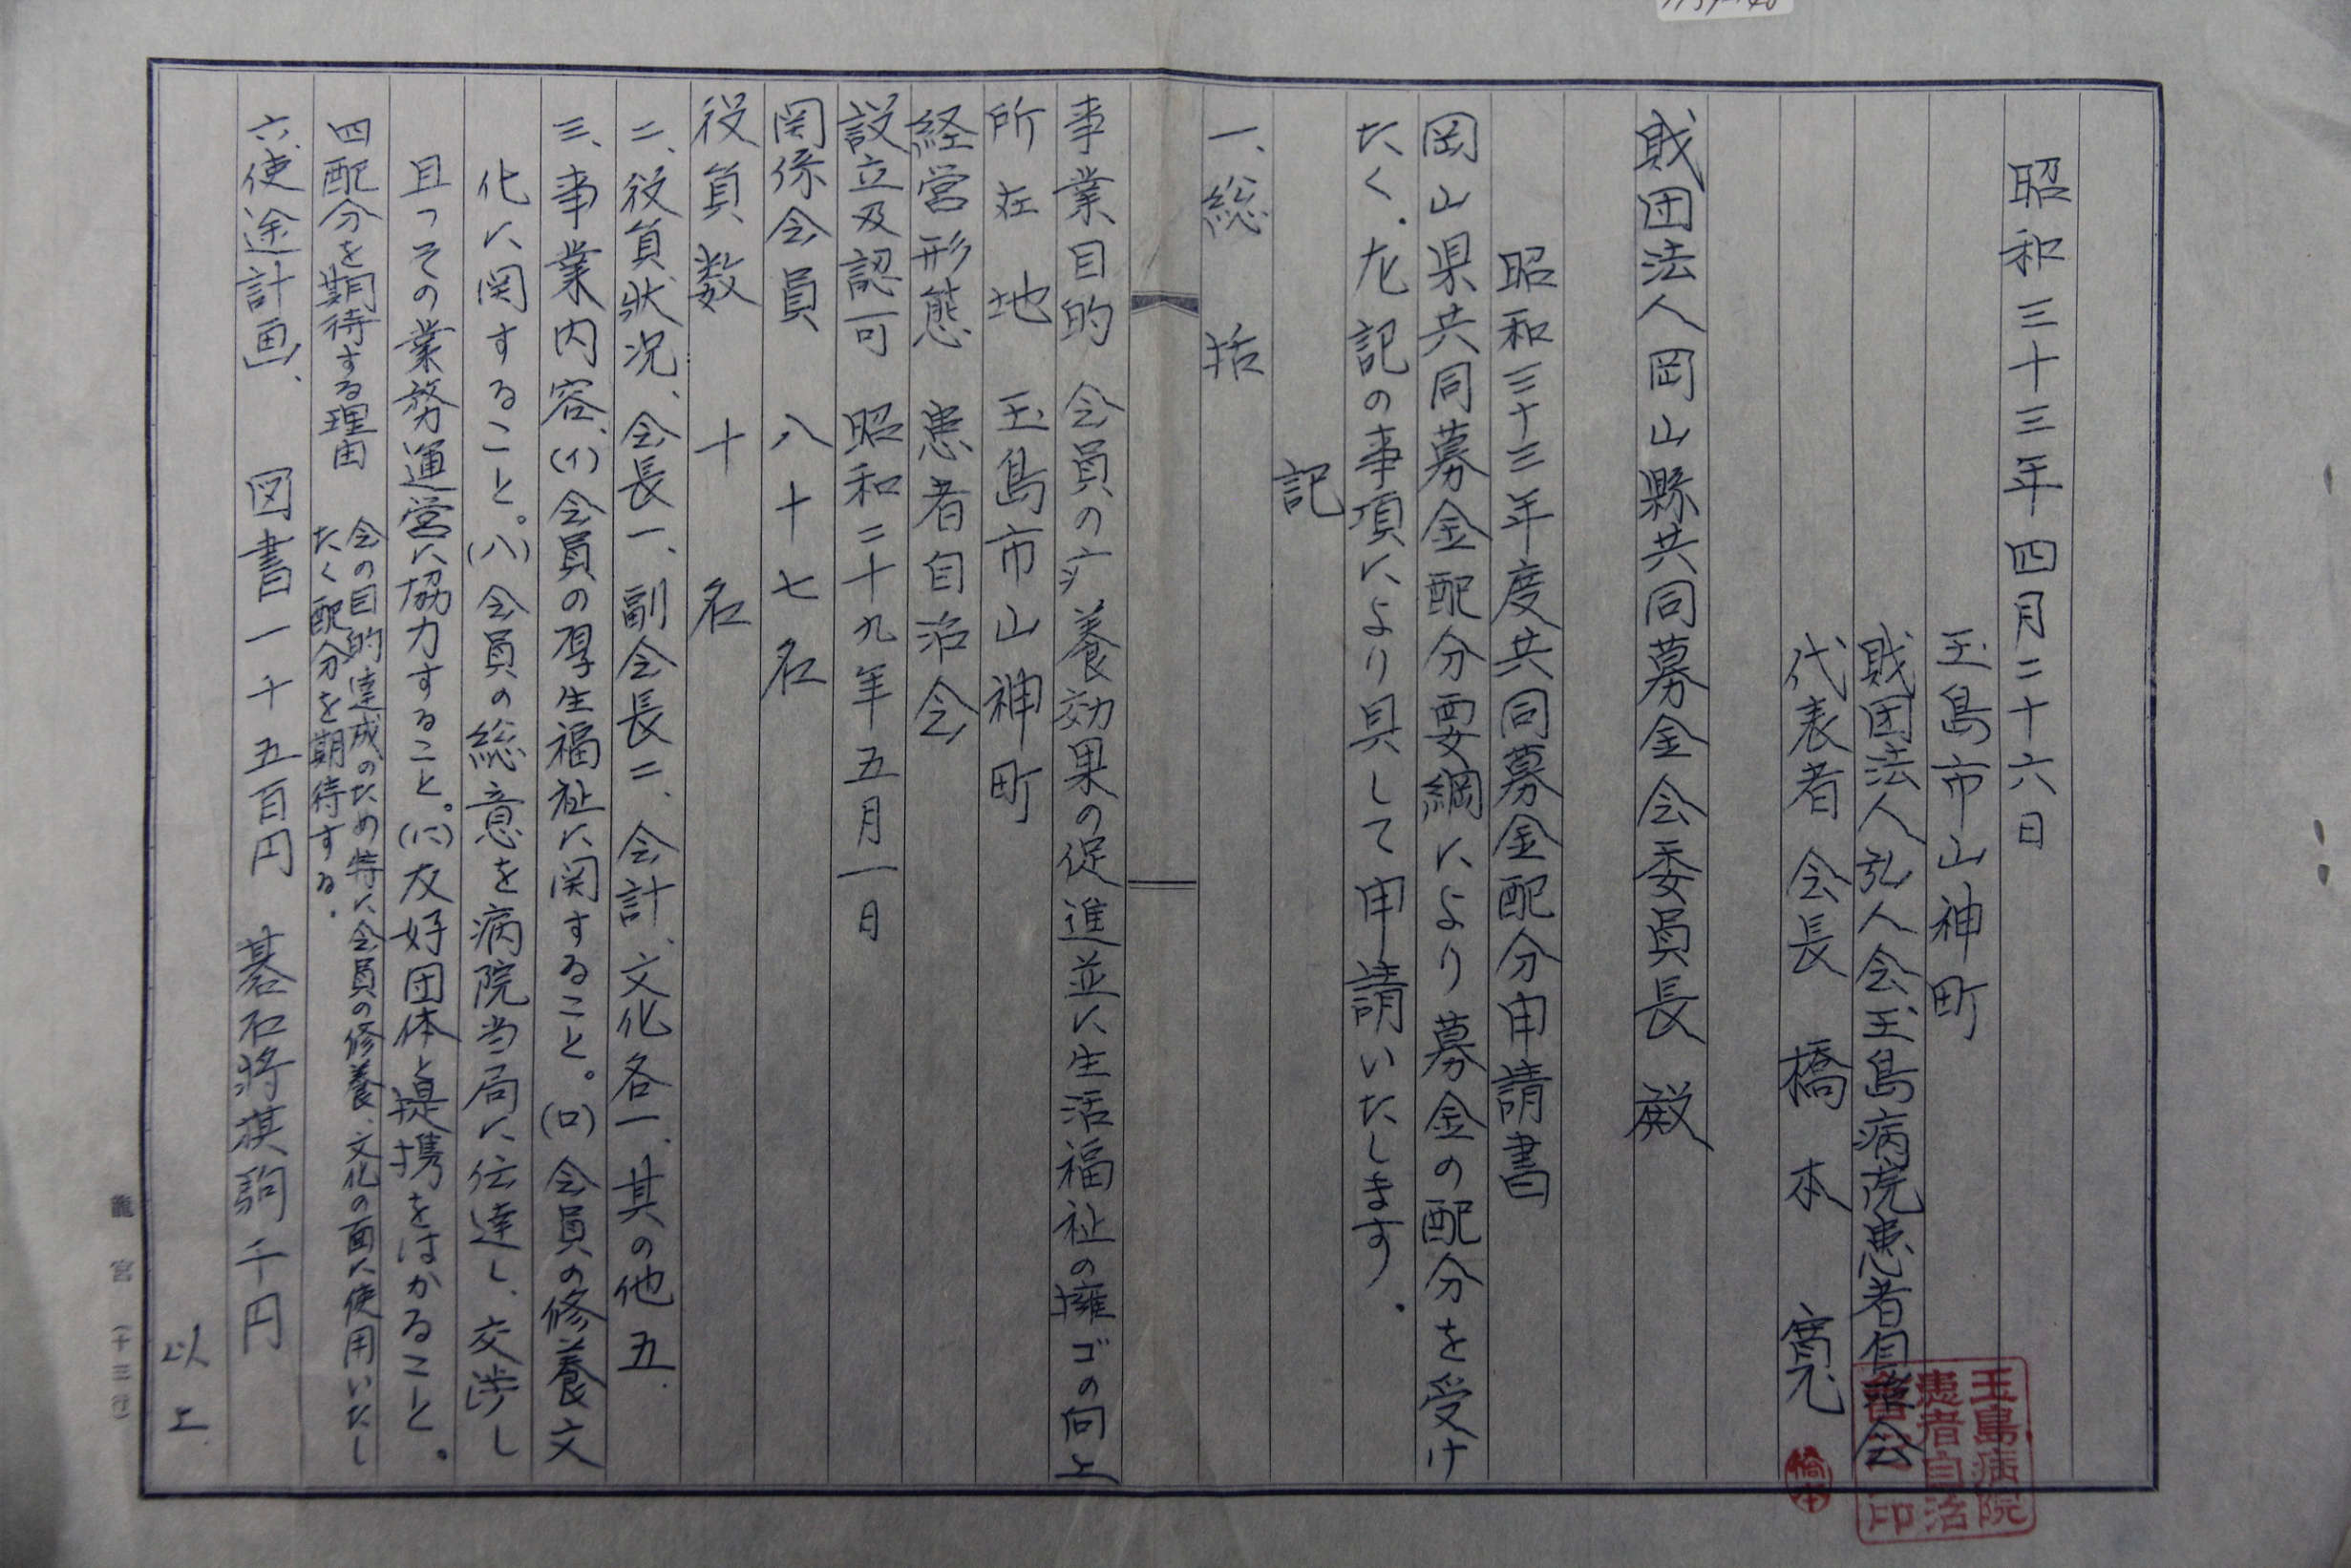 昭和三十三年四月二十六日
玉島市山神町
財団法人弘人会玉島病院患者自治会
代表者 会長 橋本 寛
玉島病院
患者自治
印
橋本
財団法人岡山縣共同募金会委員長 殿
昭和三十三年度共同募金配分申請書
岡山県共同募金配分要綱により募金の配分を受け
たく、左記の事項により具して申請いたします。
記
一、総括
事業目的 会員の疒養効果の促進並に生活福祉の擁ゴの向上
所在地 玉島市山神町
経営形態 患者自治会
設立及認可 昭和二十九年五月一日
関係会員 八十七名
役員数 十名
二、役員状況、会長一、副会長二、会計、文化各一、其の他五、
三、事業内容、(イ)会員の厚生福祉に関すること。(ロ)会員の修養文
化に関すること。(ハ)会員の総意を病院当局に伝達し、交渉し
且つその業務運営に協力すること。(ニ)友好団体と提携をはかること。
四配分を期待する理由 会の目的達成のため特に会員の修養、文化の面に使用いたし
たく配分を期待する。
六、使途計画、 図書一千五百円 碁石将棋駒千円
以上
龍宮(十三行)